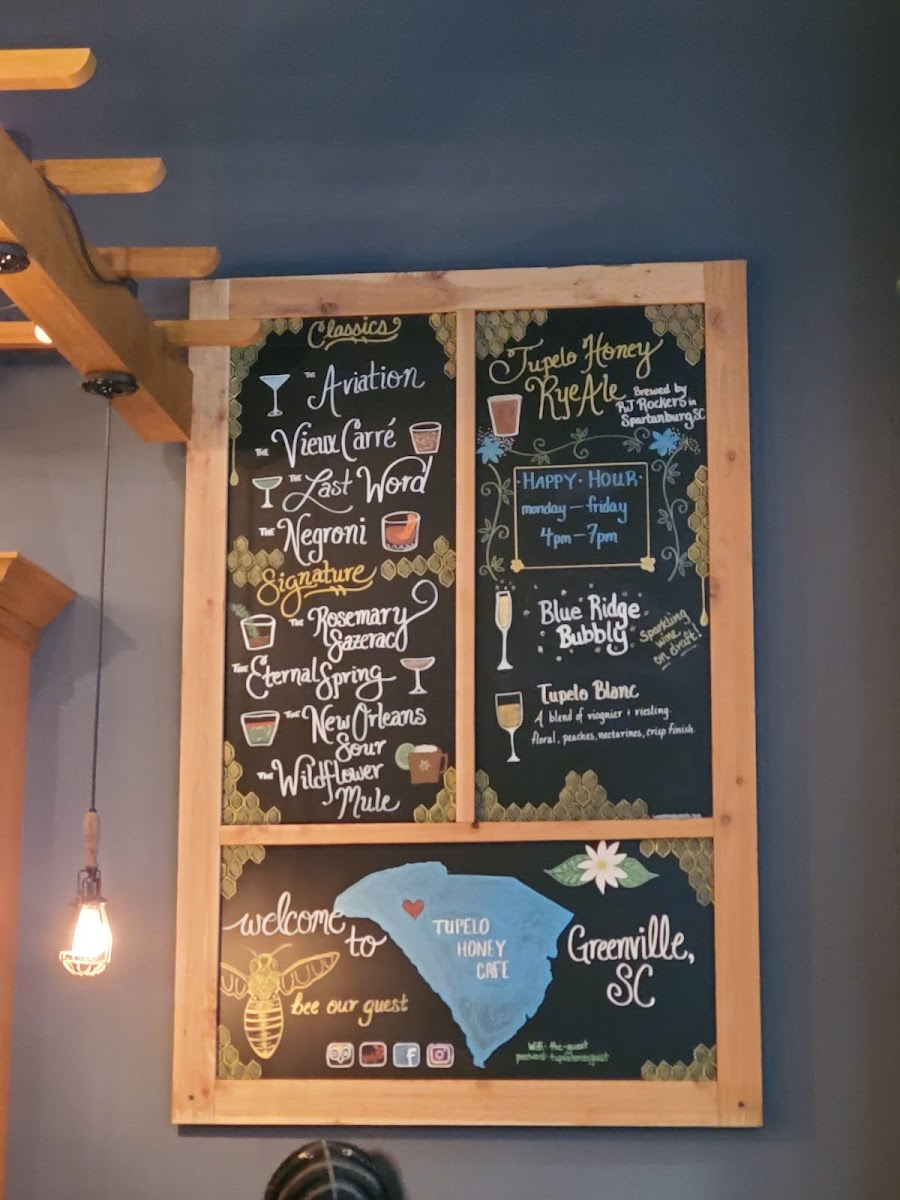 Classics
THE Aviation
THE Vieux Carré
THE Last Word
THE Negroni
Signature
THE Rosemary
Sazerac
THE Eternal Spring
THE New Orleans
Sour
THE Wildflower
Mule
Tupelo Honey
Rye Ale
Brewed by
RJ Rockers in
Spartanburg, SC
·HAPPY·HOUR·
monday — friday
4pm — 7pm
Blue Ridge
Bubbly
Sparkling
wine
on draft!
Tupelo Blanc
A blend of viognier + riesling.
floral, peaches, nectarines, crisp finish.
welcome
to
TUPELO
HONEY
CAFE
Greenville,
SC
bee our guest